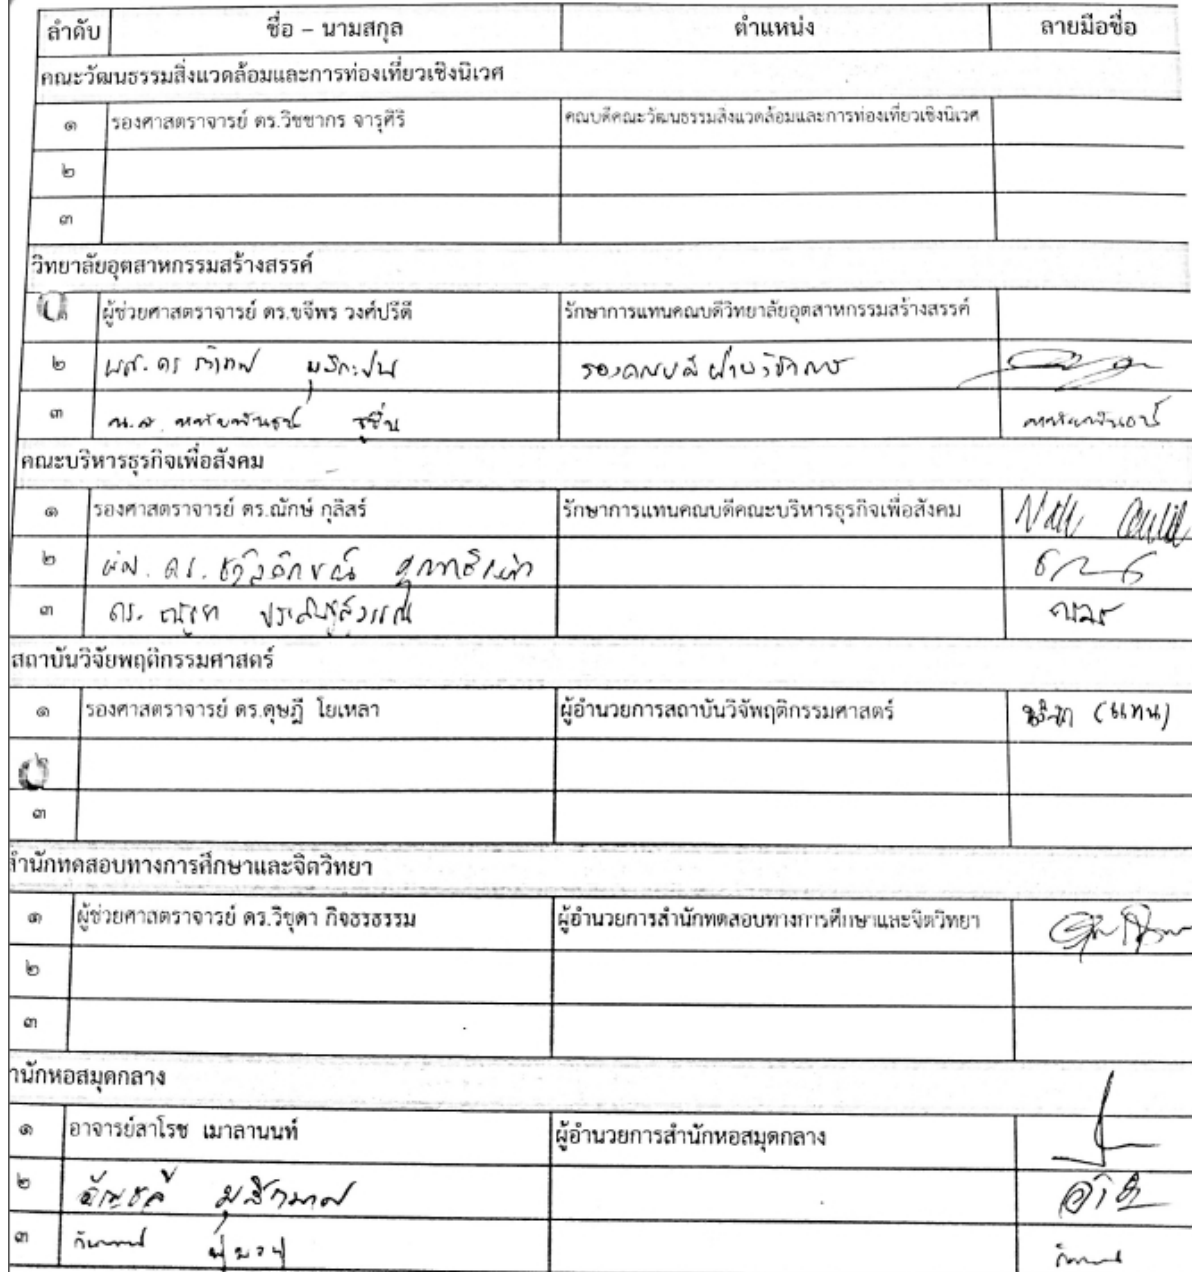 ลำดับ ชื่อ – นามสกุล ตำแหน่ง ลายมือชื่อ
คณะวัฒนธรรมสิ่งแวดล้อมและการท่องเที่ยวเชิงนิเวศ
๑ รองศาสตราจารย์ ดร.วิชชากร จารุศิริ คณบดีคณะวัฒนธรรมสิ่งแวดล้อมและการท่องเที่ยวเชิงนิเวศ
๒
๓
วิทยาลัยอุตสาหกรรมสร้างสรรค์
๑ ผู้ช่วยศาสตราจารย์ ดร.ขจีพร วงศ์ปรีดี รักษาการแทนคณบดีวิทยาลัยอุตสาหกรรมสร้างสรรค์
๒ ผศ. ดร รองคณบดีฝ่ายวิชาการ
๓ น.ส. ชูชื่น
คณะบริหารธุรกิจเพื่อสังคม
๑ รองศาสตราจารย์ ดร.ณักษ์ กุลิสร์ รักษาการแทนคณบดีคณะบริหารธุรกิจเพื่อสังคม
๒ ผศ. ดร.
๓ ดร.
สถาบันวิจัยพฤติกรรมศาสตร์
๑ รองศาสตราจารย์ ดร.ดุษฎี โยเหลา ผู้อำนวยการสถาบันวิจัพฤติกรรมศาสตร์ (แทน)
๒
๓
สำนักทดสอบทางการศึกษาและจิตวิทยา
๑ ผู้ช่วยศาสตราจารย์ ดร.วิชุดา กิจธรธรรม ผู้อำนวยการสำนักทดสอบทางการศึกษาและจิตวิทยา
๒
๓
านักหอสมุดกลาง
๑ อาจารย์สาโรช เมาลานนท์ ผู้อำนวยการสำนักหอสมุดกลาง
๒ อัญชลี มุสิกมาศ
๓